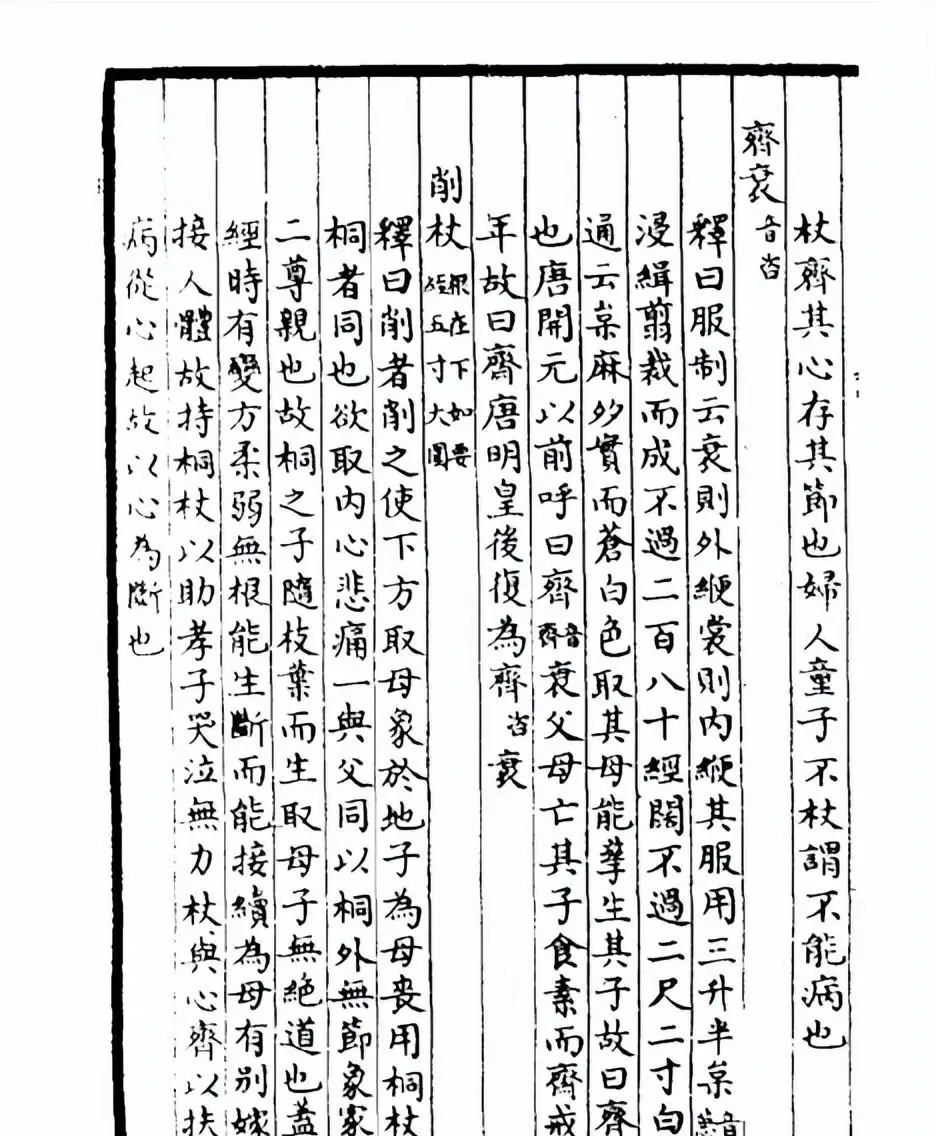 杖齊其心存其節也婦人童子不杖謂不能病也
齊衰音咨
釋曰服制云衰則外緶裳則内緶其服用三升半枲
浸緝翦裁而成不過二百八十經闊不過二尺二寸白
通云枲麻多實而蒼白色取其母能孳生其子故曰齊
也唐開元以前呼曰齊音齊衰父母亡其子食素而齊戒
年故曰齋唐明皇後復為齊咨衰
削杖根在下如要絰五寸大圓
釋曰削者削之使下方取母象於地子為母喪用桐杖
桐者同也欲取内心悲痛一與父同以桐外無節象家
二尊親也故桐之子隨枝葉而生取母子無絶道也蓋
經時有變方柔弱無根能生斷而能接續為母有别嫁
接人體故持桐杖以助孝子哭泣無力杖與心齊以扶
病從心起故以心為斷也